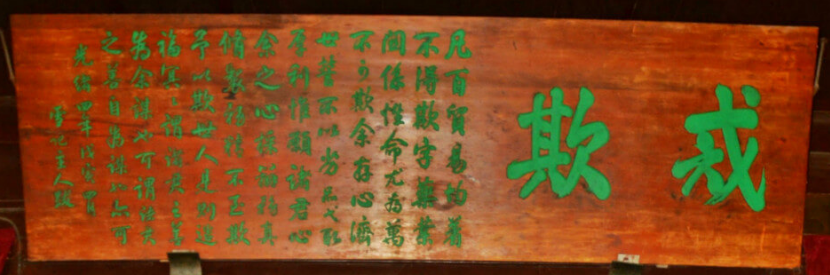 戒欺
凡百貿易均着
不得欺字藥業
關係性命尤為萬
不可欺余存心濟
世誓不以劣品弋取
厚利惟願諸君心
余之心採辦務真
修製務精不至欺
予以欺世人是則造
福冥冥謂諸君之善
為余謀也可謂諸君
之善自為謀亦可
光緒四年戊寅四月
雪記主人跋